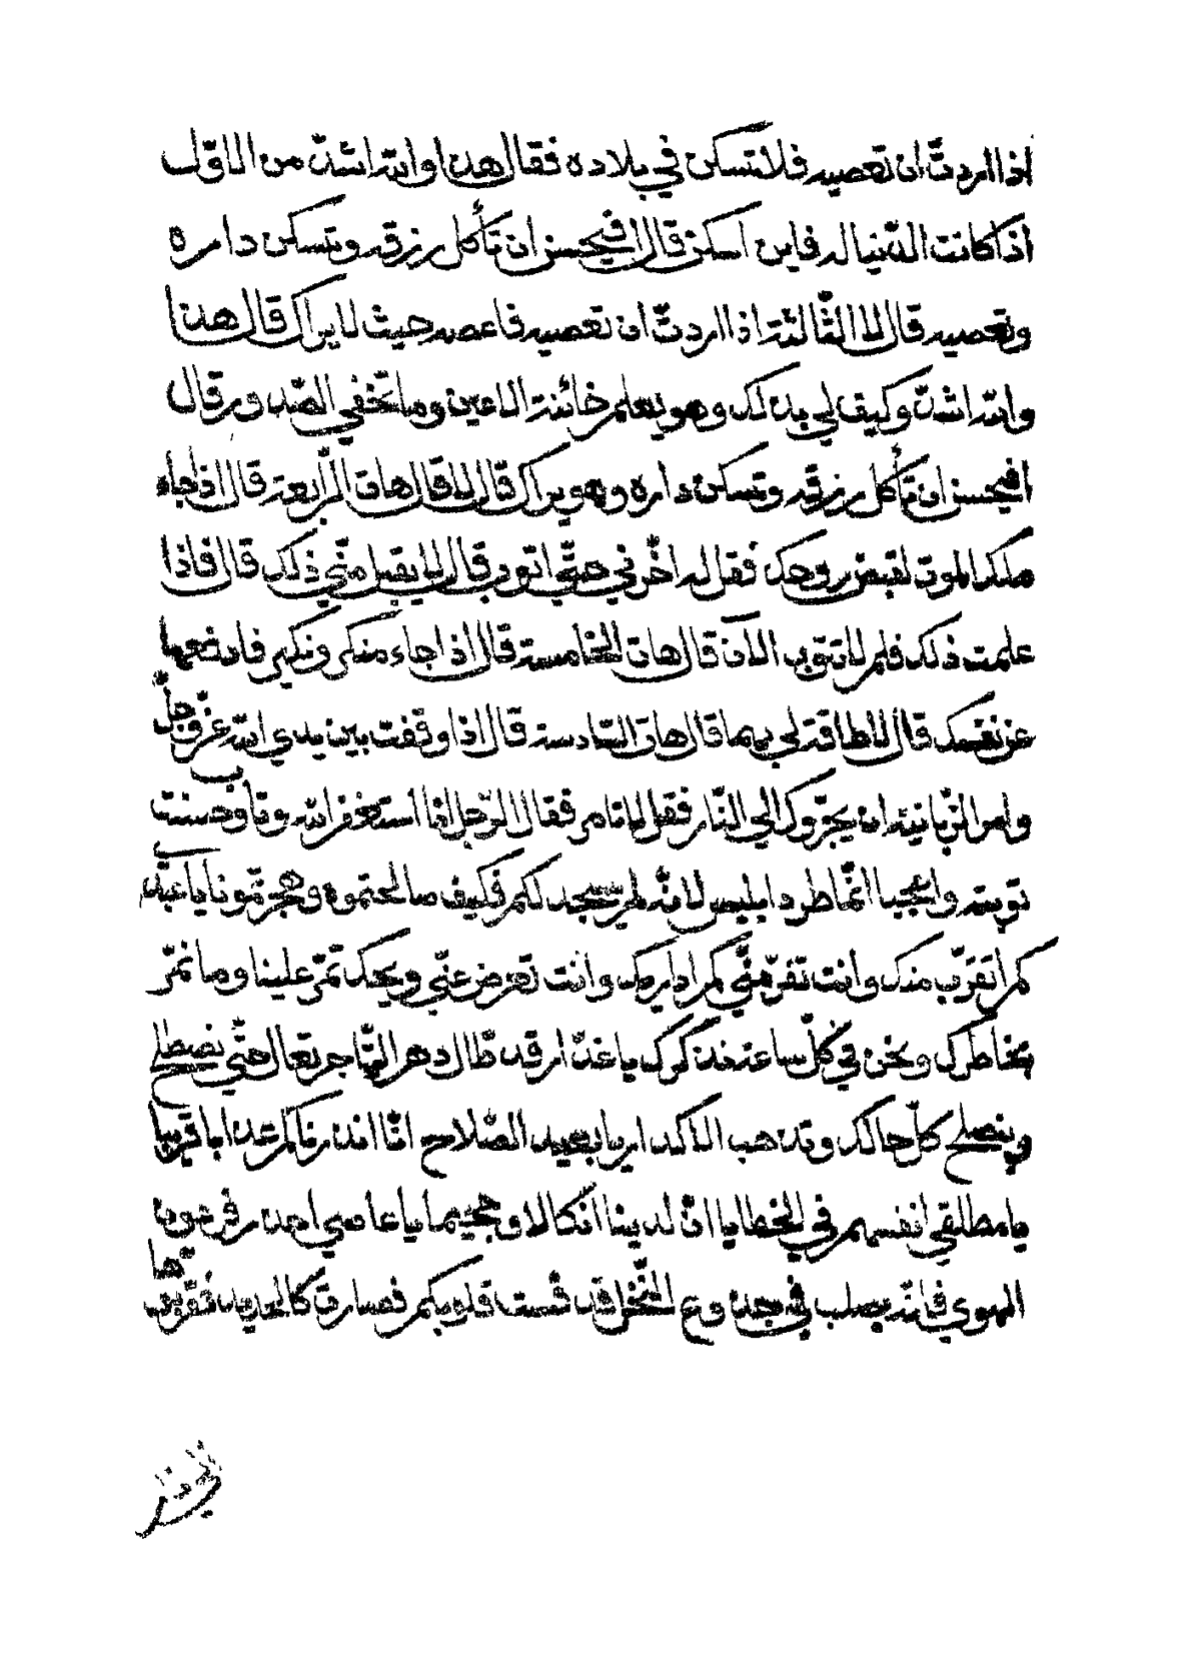 اذا اردتّ ان تعصيه فلا تسكن في بلاده فقال هذا والله اشدّ من الاوّل
اذ كانت الدّنيا له فاين اسكن قال افيحسن ان تأكل رزقه وتسكن داره
وتعصيه قال لا الثّالثة اذا اردتّ ان تعصيه فاعصه حيث لا يراك قال هذا
والله اشدّ وكيف لي بذلك وهو يعلم خائنة الاعين وما تخفي الصّدور قال
افيحسن ان تأكل رزقه وتسكن داره وهو يراك قال لا قال هات الرّابعة قال اذا جاء
ملك الموت لقبض روحك فقل له اخّرني حتّى اتوب قال لا يقبل منّي ذلك قال فاذا
علمت ذلك فلم لا تتوب الآن قال هات الخامسة قال اذا جاء منكر ونكير فادفعهما
عن نفسك قال لا طاقة لي بهما قال هات السّادسة قال اذا وقفت بين يدي الله عزّ وجلّ
وامر الزّبانية ان يجرّوك الى النّار فقل لا نامر فقال الرّجل انا استغفر الله وتاب وحسنت
توبته واعجبا انّما طرد ابليس لانّه لم يسجد لكم فكيف صالحتموه وهجرتمونا يا عبد
كم اتقرّب منك وانت تفرّ منّي كم اداريك وانت تعرض عنّي ويحك تمرّ علينا وما نمرّ
بخاطرك ونحن في كلّ ساعة نذكرك يا غدّار قد طال دهر التّهاجر تعال حتّى نصطلح
ونصلح كلّ حالك وتذهب الاكدار يا بعيد الصّلاح انّا انذرناكم عذابا قريبا
يا مطلقي انفسهم في الخطايا انّ لدينا انكالا وجحيما يا عاصي احذر فرعون
الهوي فانّه يصلب في جذوع النّخل قد قست قلوبكم فصارت كالحديد فقوّتها